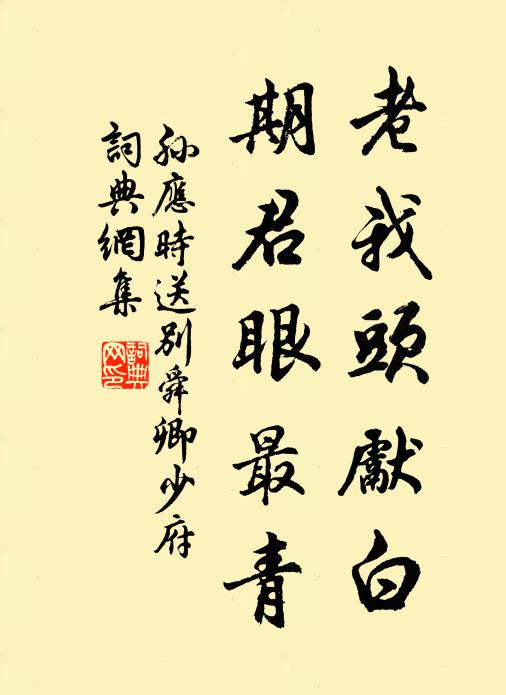 老我頭獻白
期君眼最青
孫應時送別舜卿少府
詞典網集
詞典
网印